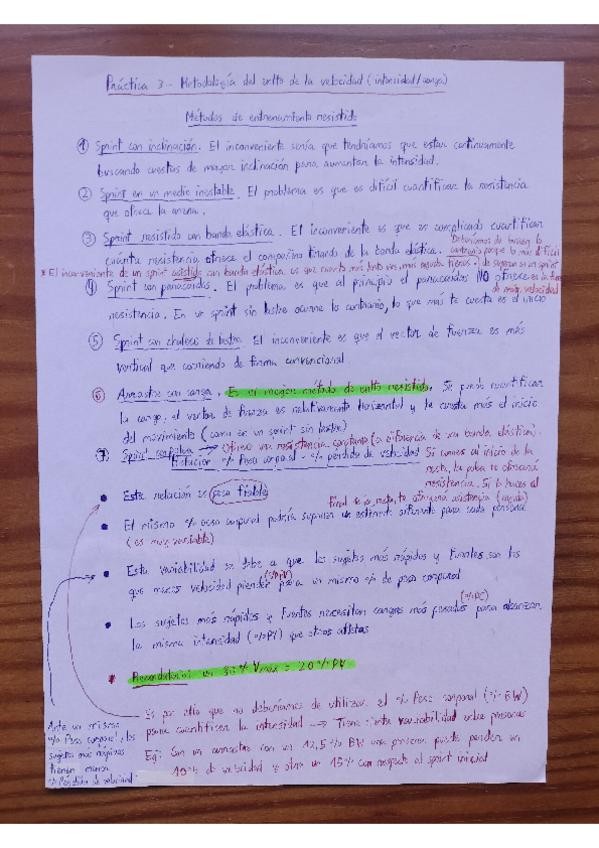 Práctica 3 - Metodología del ento de la velocidad (intensidad/carga)
Métodos de entrenamiento resistido
① Sprint con inclinación. El inconveniente sería que tendríamos que estar continuamente
buscando cuestas de mayor inclinación para aumentar la intensidad.
② Sprint en un medio inestable. El problema es que es difícil cuantificar la resistencia
que ofrece la arena.
③ Sprint resistido con banda elástica. El inconveniente es que es complicado cuantificar
cuánta resistencia ofrece el compañero tirando de la banda elástica.
* El inconveniente de un sprint asistido con banda elástica es que cuanto más
④ Sprint con paracaídas. El problema es que al principio el paracaídas NO ofrece
resistencia. En un sprint sin lastre ocurre lo contrario, lo que más te cuesta es el inicio
⑤ Sprint con chaleco de lastre. El inconveniente es que el vector de fuerza es más
vertical que corriendo de forma convencional
⑥ Arrastre con carga. Es el mejor método de ento resistido. Se puede cuantificar
la carga, el vector de fuerza es relativamente horizontal y te cuesta más el inicio
del movimiento (como en un sprint sin lastre)
⑦ Sprint con → Ofrece una resistencia constante (a diferencia de una banda elástica).
Relación % Peso corporal - % pérdida de velocidad
Si corres al inicio de la
recta, la polea te ofrecerá
resistencia. Si lo haces al
final de la recta, te ofrecerá asistencia (ayuda)
• Esta relación es poco fiable
• El mismo % peso corporal podría suponer un estímulo diferente para cada persona
(es muy variable)
• Esta variabilidad se debe a que los sujetos más rápidos y fuertes son los
que menos velocidad pierden (%PV) para un mismo % de peso corporal
• Los sujetos más rápidos y fuertes necesitan cargas más pesadas (%PC) para alcanzar
la misma intensidad (%PV) que otros atletas
* Recordatorio: un 80% Vmax = 20% PV
Es por ello que no deberíamos de utilizar el % Peso corporal (% BW)
para cuantificar la intensidad → Tiene cierta variabilidad entre personas
Ej: Con un arrastre con un 12,5% BW una persona puede perder un
10% de velocidad y otra un 15% con respecto al sprint inicial
Ante un mismo
% Peso corporal, los
sujetos más rápidos
tienen menor
% Pérdida de velocidad